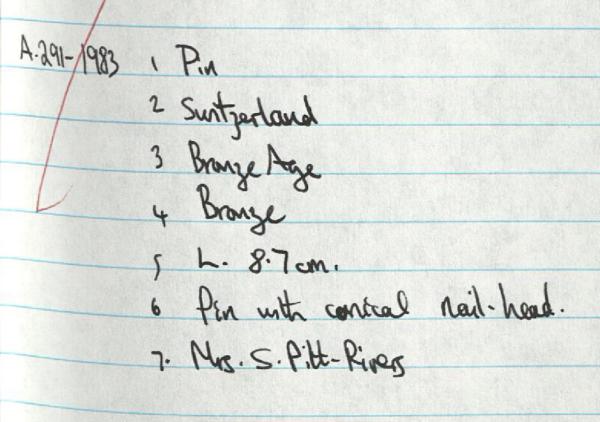 A.291-1983 1 Pin
2 Switzerland
3 Bronze Age
4 Bronze
5 L. 8.7cm.
6 Pin with conical nail-head.
7. Mrs. S. Pitt-Rivers